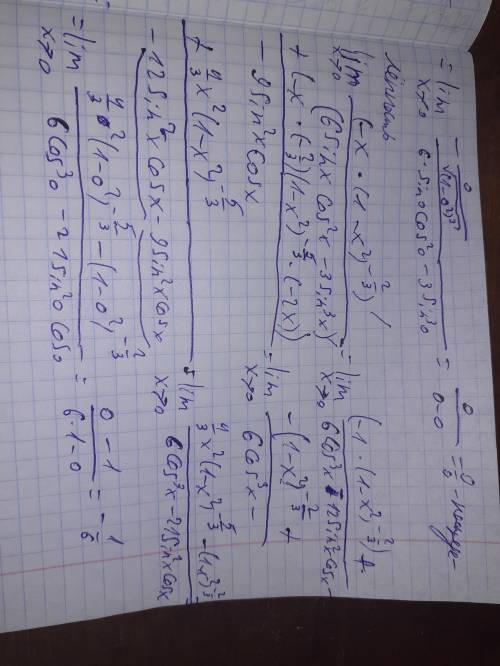 = lim x→0 (-0/∛(1-0²)²)/(6·sin0cos²0-3sin³0) = 0/(0-0) = 0/0 - неопре-
делённость
lim x→0 (-x·(1-x²)^(-2/3))'/(6sinx cos²x-3sin³x)' = lim x→0 ((-1·(1-x²)^(-2/3))+
+(-x·(-2/3)(1-x²)^(-5/3)·(-2x))/(6cos³x-12sin²xcosx-
-9sin²xcosx = lim x→0 (-(1-x²)^(-2/3)+
+4/3x²(1-x²)^(-5/3)/(6cos³x-
-12sin²xcosx-9sin²xcosx = lim x→0 (4/3x²(1-x²)^(-5/3)-(1-x²)^(-2/3))/(6cos³x-21sin²xcosx) =
= lim x→0 (4/3·0²(1-0²)^(-5/3)-(1-0²)^(-2/3))/(6cos³0-21sin²0cos0) = (0-1)/(6·1-0) = -1/6